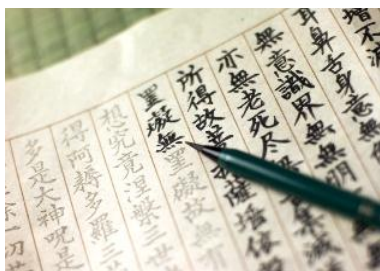 增不減
耳鼻舌身意無
無意識界無無明
亦無老死尽集滅
所得故菩薩埵依
罣礙無罣礙故無有
想究竟涅槃三世
得阿耨多羅三
多是大神呪是
除一切